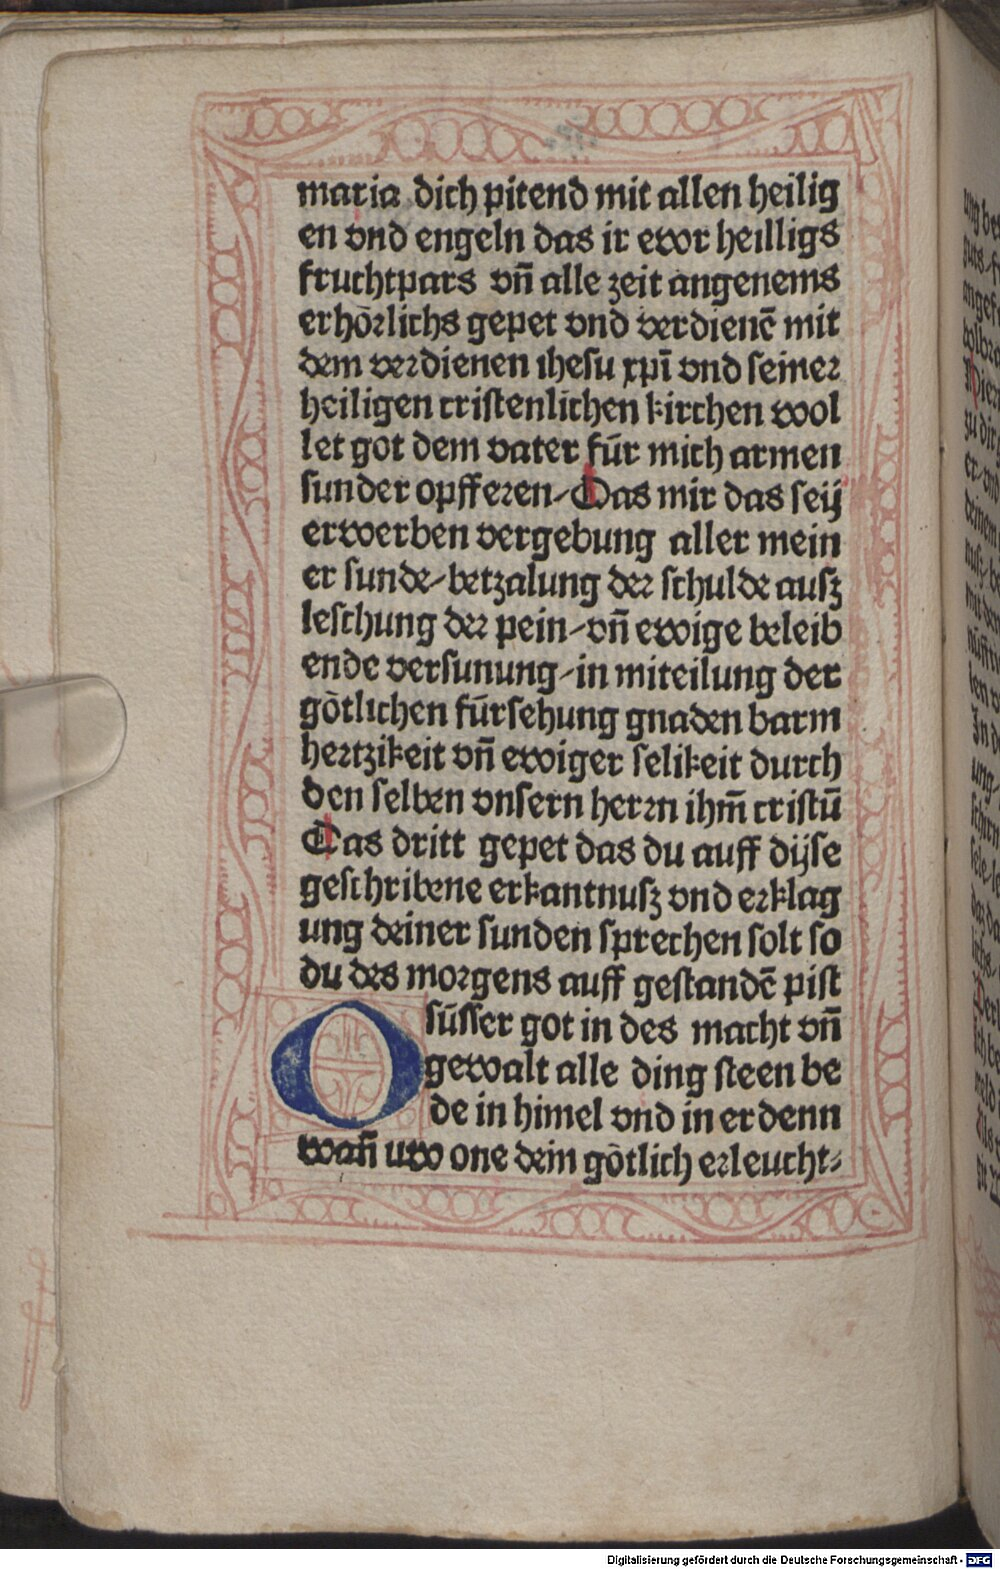 maria dich pitend mit allen heilig
en vnd engeln das ir ewr heilligs
fruchtpars vn̄ alle zeit angenems
erhörlichs gepet vnd verdienē mit
dem verdienen ihesu xp̄i vnd seiner
heiligen cristenlichen kirchen wol
let got dem vater für mich armen
sunder opfferen⸗Das mir das seÿ
erwerben vergebung aller mein
er sunde⸗betzalung der schulde ausz
leschung der pein⸗vn̄ ewige beleib
ende versunung⸗in miteilung der
götlichen fürsehung gnaden barm
hertzikeit vn̄ ewiger selikeit durch
den selben vnsern herren ihm̄ cristū
Das dritt gepet das du auff dÿse
geschribene erkantnusz vnd erklag
ung deiner sunden sprechen solt so
du des morgens auff gestandē pist
O süsser got in des macht vn̄
gewalt alle ding steen be
de in himel vnd in erdenn
wan̄ uw one dein götlich erleucht⸗
Digitalisierung gefördert durch die Deutsche Forschungsgemeinschaft - DFG